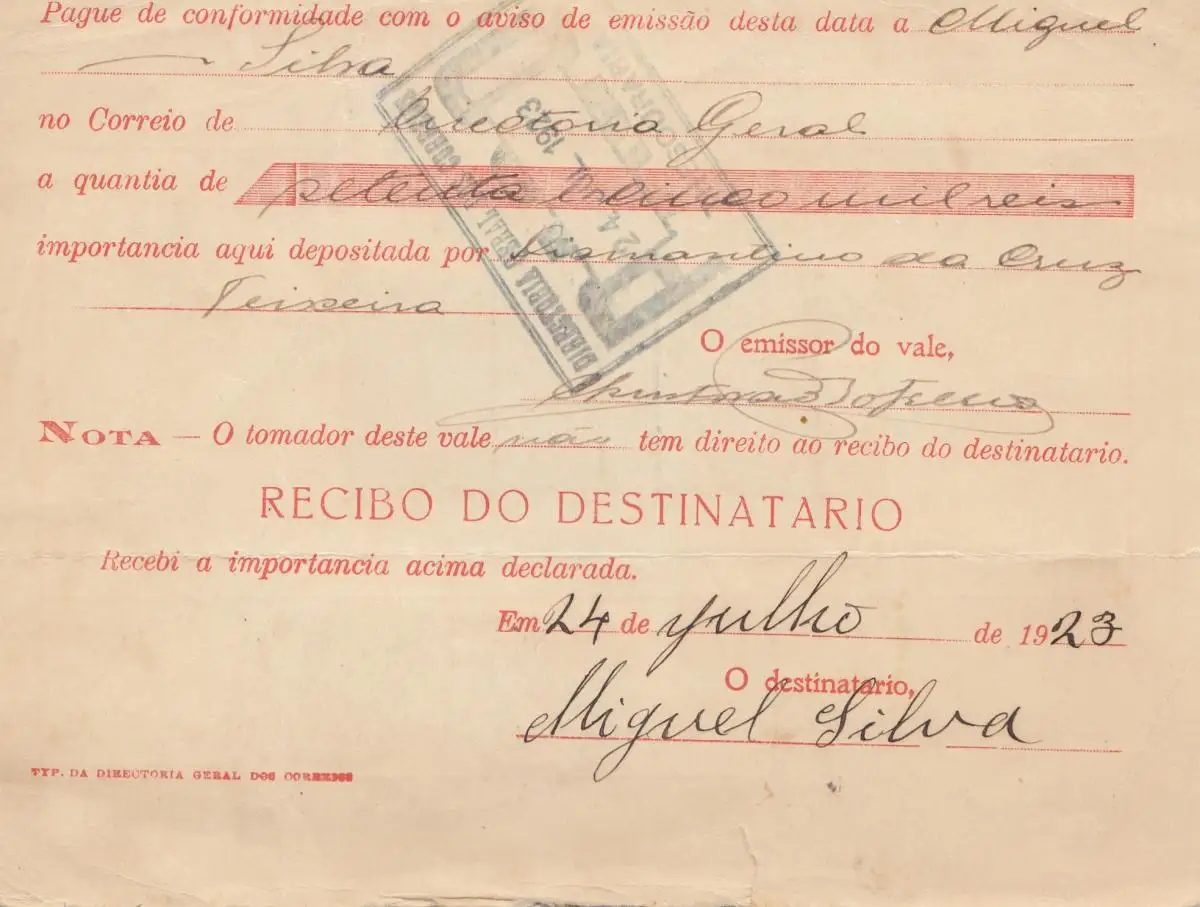 Pague de conformidade com o aviso de emissão desta data a Miguel
Silva
no Correio de Directoria Geral
a quantia de setenta e cinco mil reis
importancia aqui depositada por Diamantino da Cruz
Teixeira
O emissor do vale,
NOTA — O tomador deste vale não tem direito ao recibo do destinatario.
RECIBO DO DESTINATARIO
Recebi a importancia acima declarada.
Em 24 de julho de 1923
O destinatario,
Miguel Silva
TYP. DA DIRECTORIA GERAL DOS CORREIOS